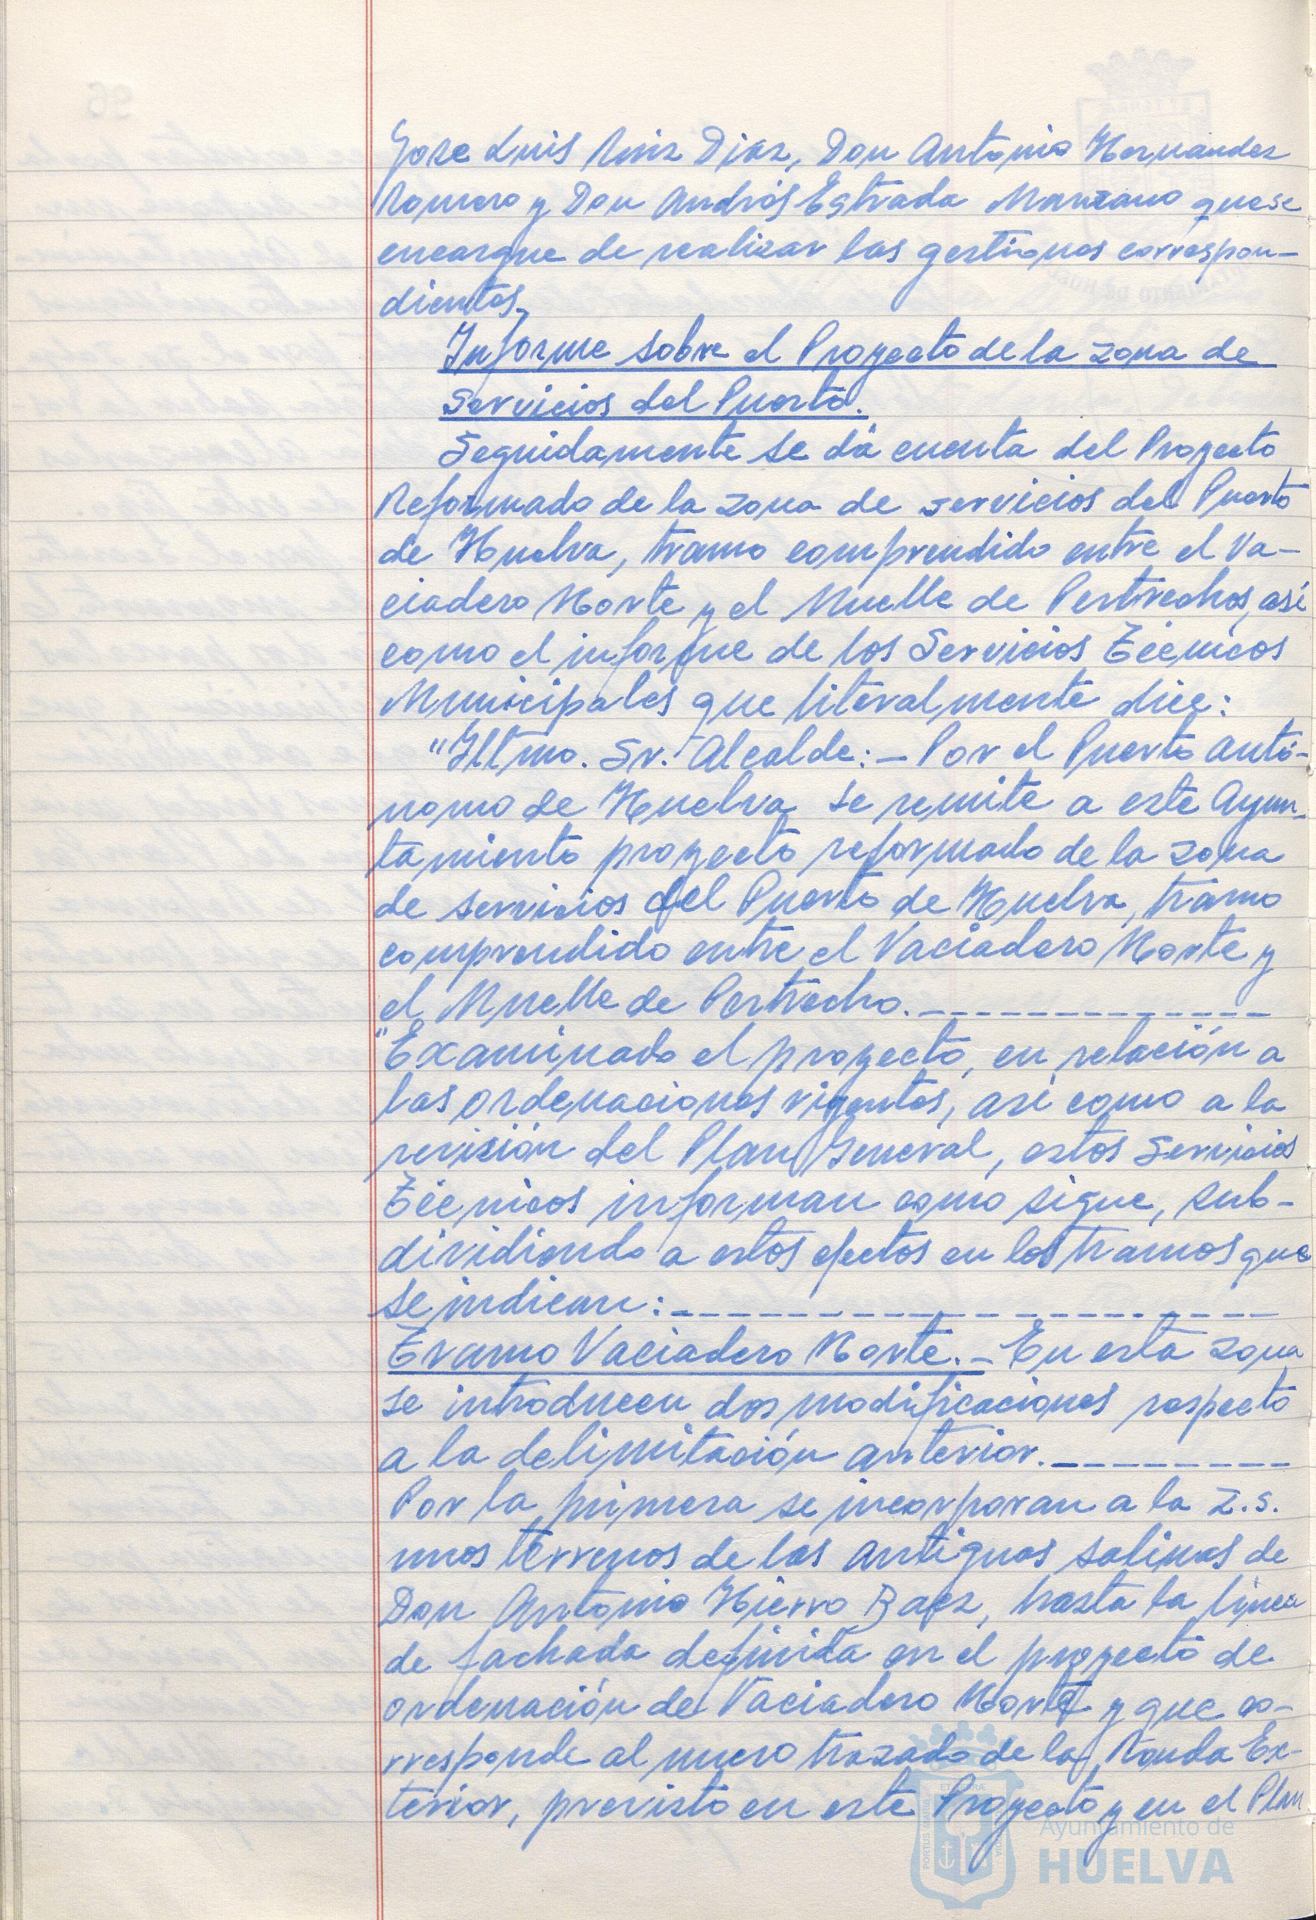 Jose Luis Ruiz Diaz, Don Antonio Hernandez
Romero y Don Andrés Estrada Manzano que se
encargue de realizar las gestiones correspon-
dientes.
Informe sobre el Proyecto de la zona de
Servicios del Puerto.
Seguidamente se dá cuenta del Proyecto
Reformado de la zona de servicios del Puerto
de Huelva, tramo comprendido entre el Va-
ciadero Norte y el Muelle de Pertrechos, así
como el informe de los Servicios Técnicos
Municipales que literalmente dice:
"Iltmo. Sr. Alcalde: - Por el Puerto Autó-
nomo de Huelva se remite a este Ayun-
tamiento proyecto reformado de la zona
de servicios del Puerto de Huelva, tramo
comprendido entre el Vaciadero Norte y
el Muelle de Pertrecho. - - - - - - - - - - - - -
"Examinado el proyecto, en relación a
las ordenaciones vigentes, así como a la
revisión del Plan General, estos Servicios
Técnicos informan como sigue, sub-
dividiendo a estos efectos en los tramos que
se indican: - - - - - - - - - - - - - - - - - - - - -
Tramo Vaciadero Norte. - En esta zona
se introducen dos modificaciones respecto
a la delimitación anterior. - - - - - - - - -
Por la primera se incorporan a la Z.S.
unos terrenos de las antiguas salinas de
Don Antonio Hierro Baez, hasta la línea
de fachada definida en el proyecto de
ordenación de Vaciadero Norte y que co-
rresponde al nuevo trazado de la Ronda Ex-
terior, previsto en este Proyecto y en el Plan
Ayuntamiento de
HUELVA